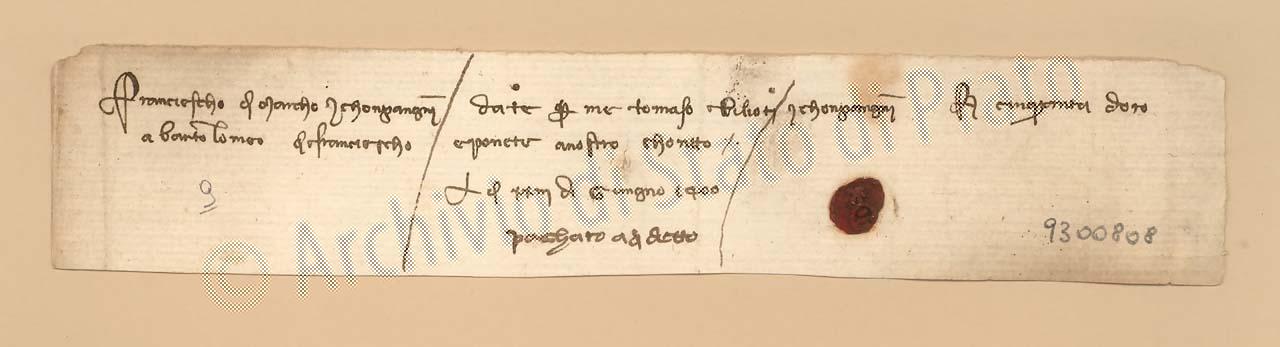 Franciescho di Marcho e chonpangni / date per me tomaso e chonpangni F cinquanta doro
a bartolomeo di franciescho e ponete a nostro chonto
di XXVI di Giungno 1400
paghato a di detto
9
9300808
© Archivio di Stato di Prato